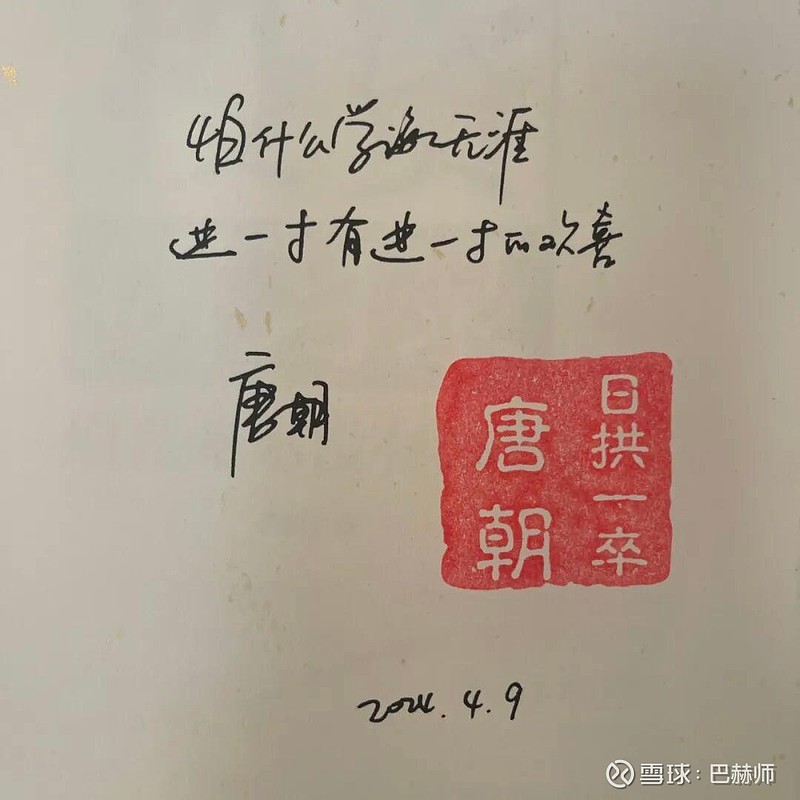 怕什么学海无涯
进一寸有进一寸的欢喜
唐朝
日拱一卒
唐朝
2024.4.9
雪球：巴赫师